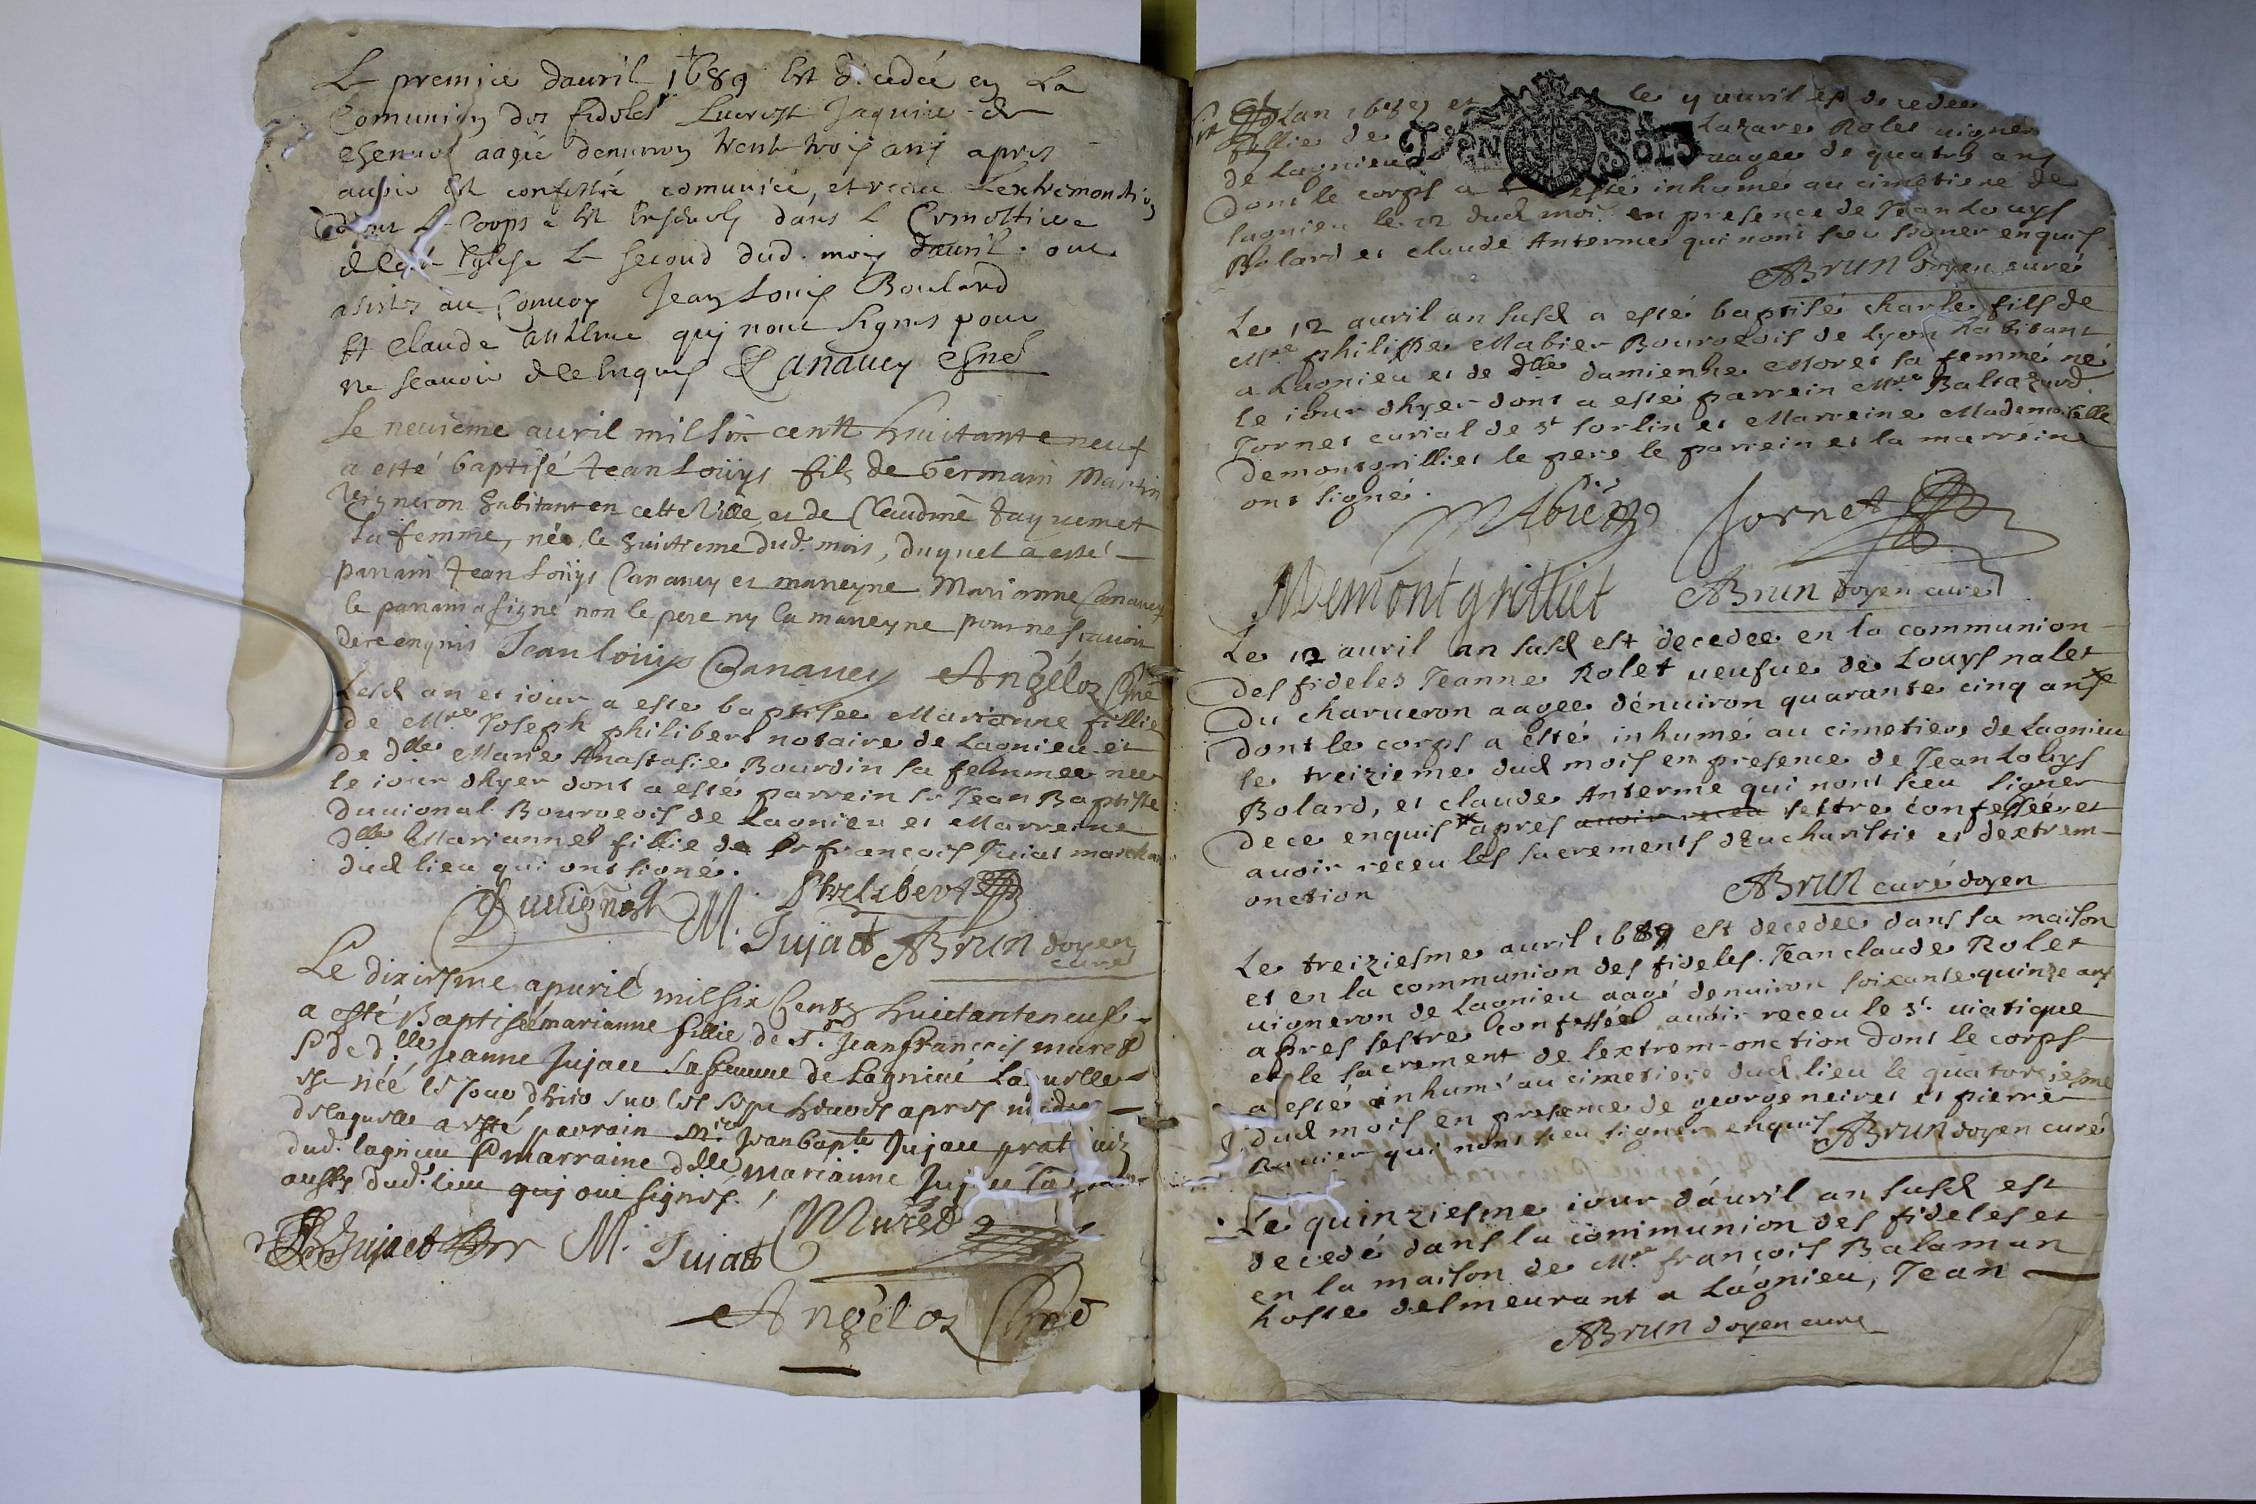 Le premier dauril 1689 Est decedée en La
Comunion des fidoles Jaquine de
aagée denuiron trente trois ans apres
auoir Est confessée comuniée, et receu Lextremonction
dont Le Corps a Est dans L Cemettiere
Eglise Le second dud. mois dauril. ont
asistés au Conuoy Jean Louis Boulard
Et Claude Antelme qui nont signes pour
ne scauoir de ce Enquis Canauey
Le neuieme auril mil six centt huittante neuf
a esté baptisé Jean Loüys fils de Germain Martin
Vigneron habitant en cette Ville, et de Claudine Jayuemet
sa femme, née le huitieme dud. mois, duquel a esté
parrain Jean Loüys Canauey et marreyne Marianne Canauey
le parrain a signé non le pere ny la marreyne pour ne scauoir
de ce enquis Jean loüys Canauey Angeloz
Lesd an et iour a este baptisee Marianne fillie
de Mre Joseph philibert notaire de Lagnieu et
de dlle Marie Anastasie Bourdin sa femme nee
le iour dhyer dont a esté parrein sr Jean Baptiste
Bourgeois de Lagnieu et Marreine
dlle Marianne fillie de sr françois Juiat marchant
dud lieu qui ont signé.
Philibert
M. Jujat ABrun doyen
curé
Le dixiesme apuril mil six Centz huictante neuf
a esté Baptisée marianne fillie de Sr. Jean françois muret
& de dlle. Jeanne Jujat sa femme de Lagnieu Laquelle
est néé le Jour dhier sur les sept heures apres midy
de laquelle a esté parrain Mre Jean bapte Jujat
dud. lagnieu & marraine dlle marianne Jujat
aussy dud. lieu qui ont signés.
Jujat M. Jujat Muret
Angeloz
Lan 1689 et le 11 auril est decedee
fillie de Lazare Rolet uigneron
de Lagnieu aagee de quatre ans
dont le corps a esté inhumé au cimetiere de
lagnieu le 12 dud mois en presence de Jean Louys
Bolard et claude Anterme qui nont sceu signer enquis
ABrun doyen curé
Le 12 auril an susd a esté baptisé charle fils de
Mre philippe Mabier Bourgeois de lyon habitant
a Lagnieu et de dlle damienne Moret sa femme né
le iour dhyer dont a esté parrein Mre Baltazard
Jornet curial de st sorlin et Marreine Mademoiselle
demontgrilliet le pere le parrein et la marreine
ont signé.
Mabiez Jornet
Demontgrilliet ABrun doyen curé
Le 12 auril an susd est decedee en la communion
des fideles Jeanne Rolet ueufue de Louys nalet
du charueron aagee denuiron quarante cinq ans
dont le corps a esté inhumé au cimetiere de Lagnieu
le treizieme dud mois en presence de Jean Louys
Bolard, et claude Anterme qui nont sceu signer
de ce enquis apres auoir receu sestre confessée et
auoir receu les sacrements deucharistie et dextrem-
onction
ABrun curé doyen
Le treiziesme auril 1689 est decedee dans sa maison
et en la communion des fideles. Jean claude Rolet
uigneron de Lagnieu aagé denuiron soixante quinze ans
apres sestre confessé auoir receu le st. uiatique
et le sacrement de lextrem-onction dont le corps
a esté inhumé au cimetiere dud. lieu le quatorziesme
dud mois en presence de george neiret et pierre
Rauier qui nont sceu signer enquis ABrun doyen curé
Le quinziesme iour dauril an susd est
decedé dans la communion des fideles et
en la maison de Mre françois Balaman
hoste demeurant a Lagnieu, Jean
ABrun doyen curé